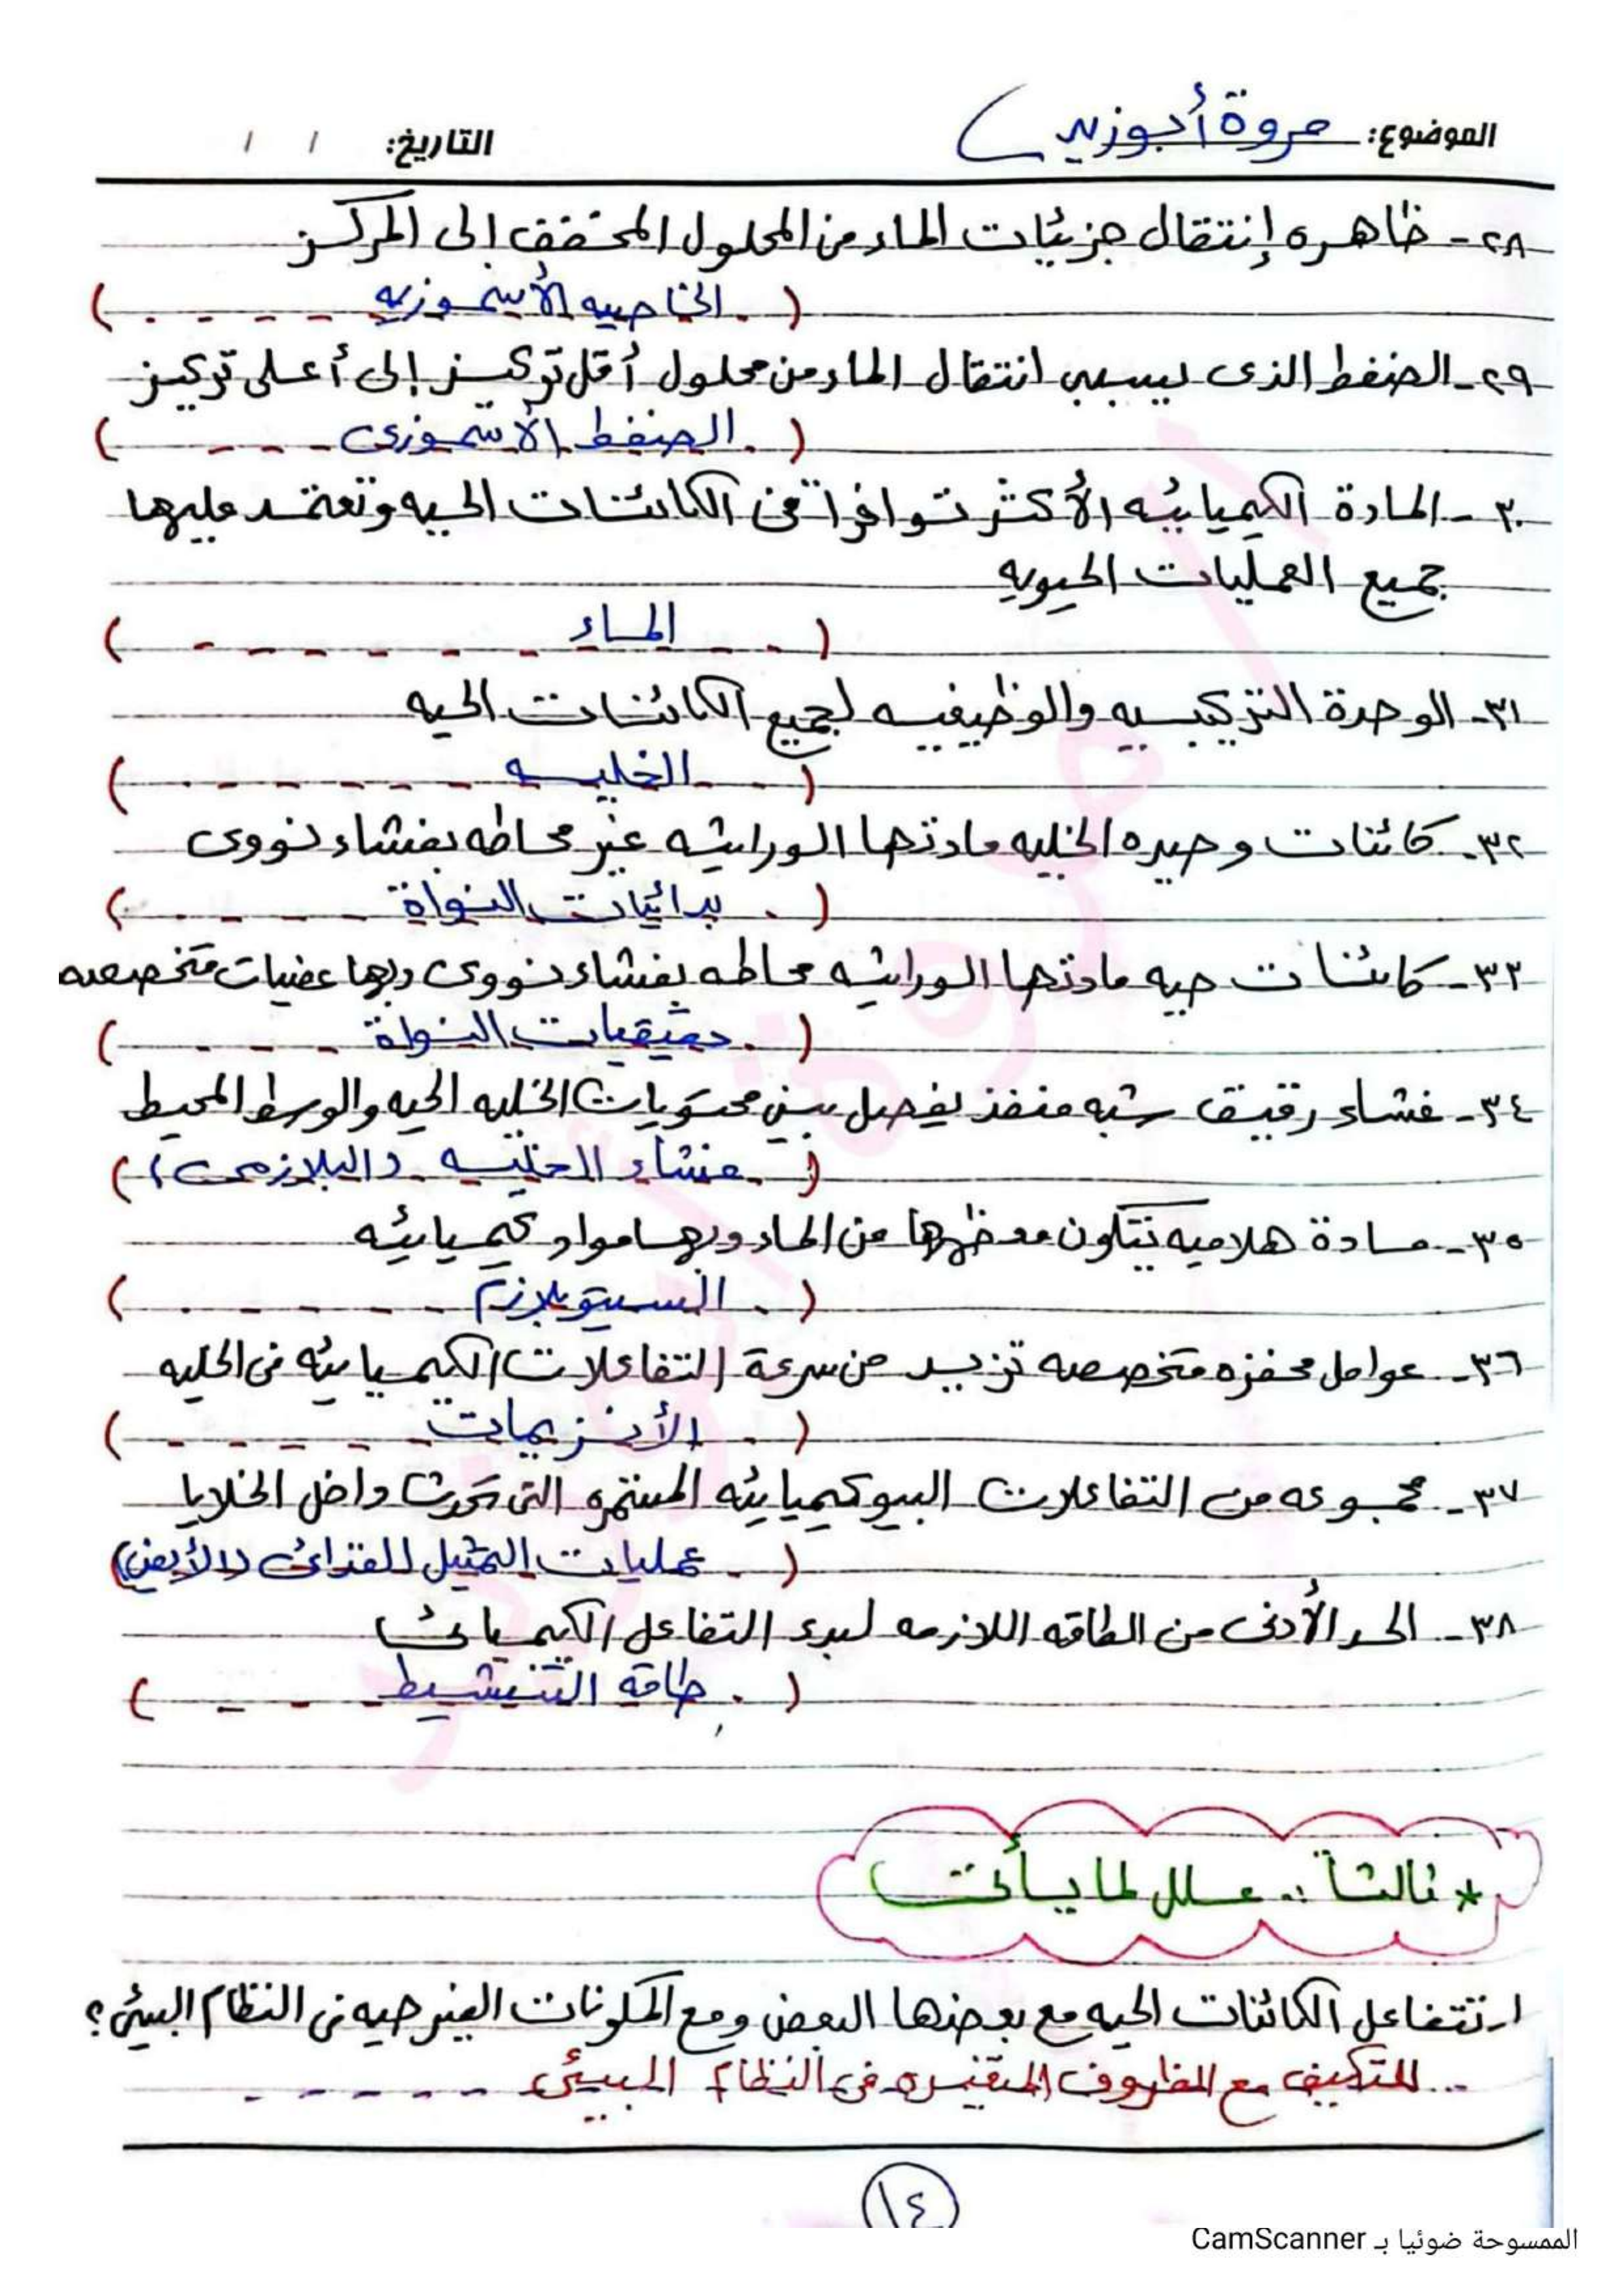 الموضوع: مروة أبوزيد التاريخ: / /
٢٨- ظاهره إنتقال جزيئات الماء من المحلول المخفف إلى المركز
( الخاصيه الأسموزيه )
٢٩- الضغط الذى يسبب انتقال الماء من محلول أقل تركيز إلى أعلى تركيز
( الضغط الأسموزى )
٣٠- المادة الكيميائيه الأكثر توافراً فى الكائنات الحيه وتعتمد عليها
جميع العمليات الحيويه
( الماء )
٣١- الوحدة التركيبيه والوظيفيه لجميع الكائنات الحيه
( الخليه )
٣٢- كائنات وحيده الخليه مادتها الوراثيه غير محاطه بغشاء نووى
( بدائيات النواة )
٣٣- كائنات حيه مادتها الوراثيه محاطه بغشاء نووى وبها عضيات متخصصه
( حقيقيات النواة )
٣٤- غشاء رقيق شبه منفذ يفصل بين محتويات الخليه الحيه والوسط المحيط
( غشاء الخليه (البلازمى) )
٣٥- مادة هلاميه يتكون معظمها من الماء وبها مواد كيميائيه
( السيتوبلازم )
٣٦- عوامل محفزه متخصصه تزيد من سرعة التفاعلات الكيميائيه فى الخليه
( الأنزيمات )
٣٧- مجموعه من التفاعلات البيوكيميائيه المستمره التى تحدث داخل الخلايا
( عمليات التمثيل الغذائى (الأيض) )
٣٨- الحد الأدنى من الطاقه اللازمه لبدء التفاعل الكيميائى
( طاقه التنشيط )
* ثالثاً :. علل لما يأتى
١- تتفاعل الكائنات الحيه مع بعضها البعض ومع المكونات الغير حيه فى النظام البيئى؟
للتكيف مع الظروف المتغيره فى النظام البيئى
١٤
الممسوحة ضوئيا بـ CamScanner